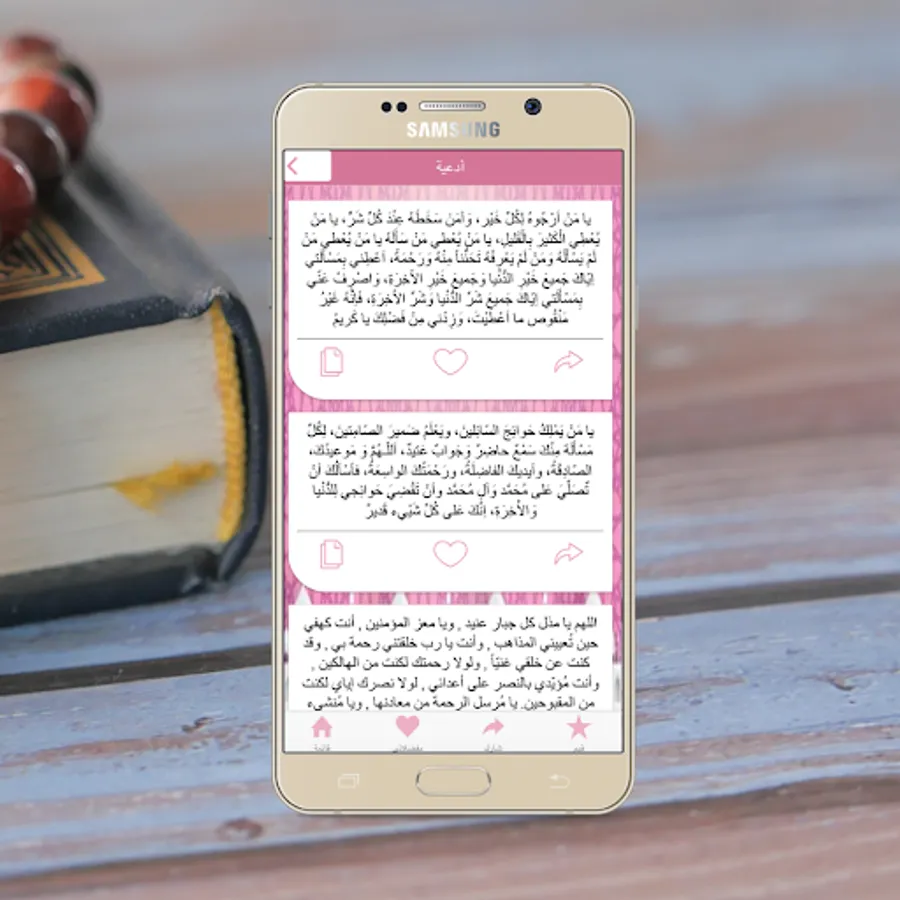 SAMSUNG
أدعية
يا مَنْ أرْجُوهُ لِكُلِّ خَيْرٍ، وَآمَنُ سَخَطَهُ عِنْدَ كُلِّ شَرٍّ، يا مَنْ
يُعْطِي الْكَثيرَ بِالْقَليلِ، يا مَنْ يُعْطي مَنْ سَألَهُ يا مَنْ يُعْطي مَنْ
لَمْ يَسْألْهُ وَمَنْ لَمْ يَعْرِفْهُ تَحَنُّناً مِنْهُ وَرَحْمَةً، أعْطِني بِمَسْألَتي
إيّاكَ جَميعَ خَيْرِ الدُّنْيا وَجَميعَ خَيْرِ الآخِرَةِ، وَاصْرِفْ عَنّي
بِمَسْألَتي إيّاكَ جَميعَ شَرِّ الدُّنْيا وَشَرِّ الآخِرَةِ، فَإنَّهُ غَيْرُ
مَنْقُوصٍ ما أعْطَيْتَ، وَزِدْني مِنْ فَضْلِكَ يا كَريمُ
يا مَنْ يَمْلِكُ حَوائِجَ السّائِلينَ، ويَعْلَمُ ضَميرَ الصّامِتينَ، لِكُلِّ
مَسْألَةٍ مِنْكَ سَمْعٌ حاضِرٌ وَجَوابٌ عَتيدٌ، اَللّـهُمَّ وَ مَوعيدُكَ،
الصّادِقَةُ، وأيديكَ الفاضِلَةُ، ورَحْمَتُكَ الواسِعَةُ، فأسْألُكَ أنْ
تُصَلِّيَ عَلى مُحَمَّد وَآلِ مُحَمَّد وأنْ تَقْضِيَ حَوائِجي لِلدُّنْيا
وَالأخِرَةِ، إنَّكَ عَلى كُلِّ شَيْيء قَديرٌ
اللهم يا مذل كل جبار عنيد , ويا معز المؤمنين , أنت كهفي
حين تُعييني المذاهب , وأنت يا رب خلقتني رحمة بي , وقد
كنت عن خلقي غنيّاً , ولولا رحمتك لكنت من الهالكين ,
وأنت مُؤيّدي بالنصر على أعدائي , لولا نصرك إياي لكنت
من المقبوحين. يا مُرسل الرحمة من معادنها , ويا مُنشىء